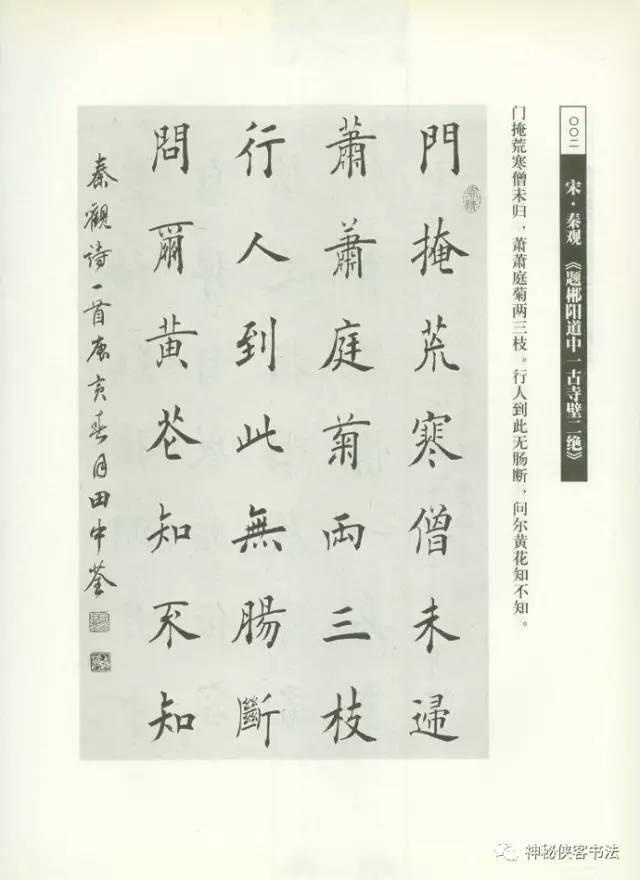 〇〇二 宋·秦观 《题郴阳道中一古寺壁二绝》
门掩荒寒僧未归，萧萧庭菊两三枝。行人到此无肠断，问尔黄花知不知。
門掩荒寒僧未歸
蕭蕭庭菊兩三枝
行人到此無腸斷
問爾黃花知不知
秦觀诗一首庚寅春月田中荃
神秘侠客书法